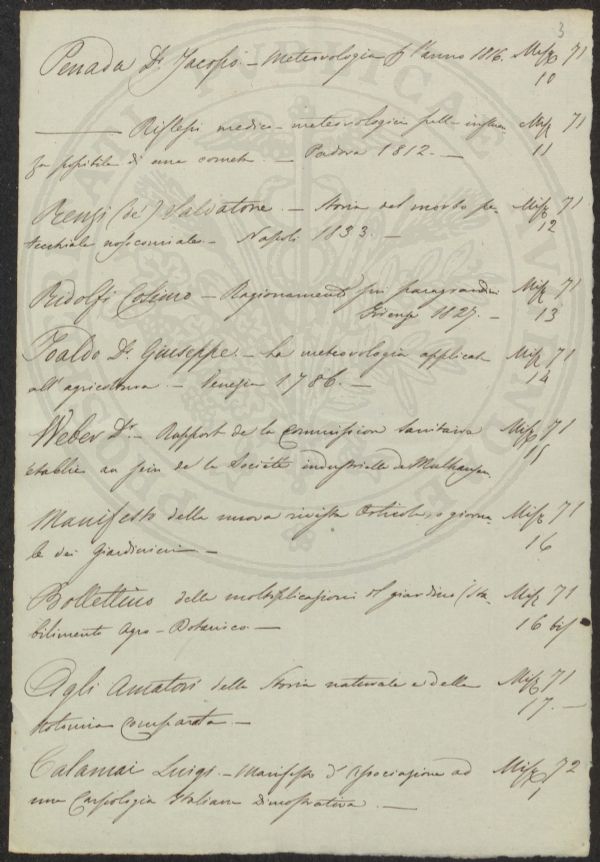 3
Penada Dr. Jacopo. - Meteorologia p. l'anno 1816. Misc. 71
10
——— Riflessi medico-meteorologici sull'influen Misc. 71
za possibile di una cometa. - Padova 1812. - 11
Renzi (de') Salvatore. - Storia del morbo pe- Misc. 71
tecchiale nosocomiale. - Napoli 1833. - 12
Ridolfi Cosimo - Ragionamenti sui paragrandini Misc. 71
Firenze 1827. - 13
Toaldo Dr. Giuseppe. - La meteorologia applicata Misc. 71
all'agricoltura. - Venezia 1786. - 14
Weber Dr. - Rapport de la Commission Sanitaire Misc. 71
etablie au sein de la Société industrielle de Mulhausen. 15
Manifesto della nuova rivista Orticola, o giorna- Misc. 71
le dei Giardinieri - 16
Bollettino delle moltiplicazioni del giardino (Sta- Misc. 71
bilimento Agro-Botanico. - 16 bis
Agli Amatori della Storia naturale e della Misc. 71
Botanica comparata. - 17. -
Calamai Luigi. - Manifesto d'Associazione ad Misc. 72
una Carpologia Italiana dimostrativa. - 1